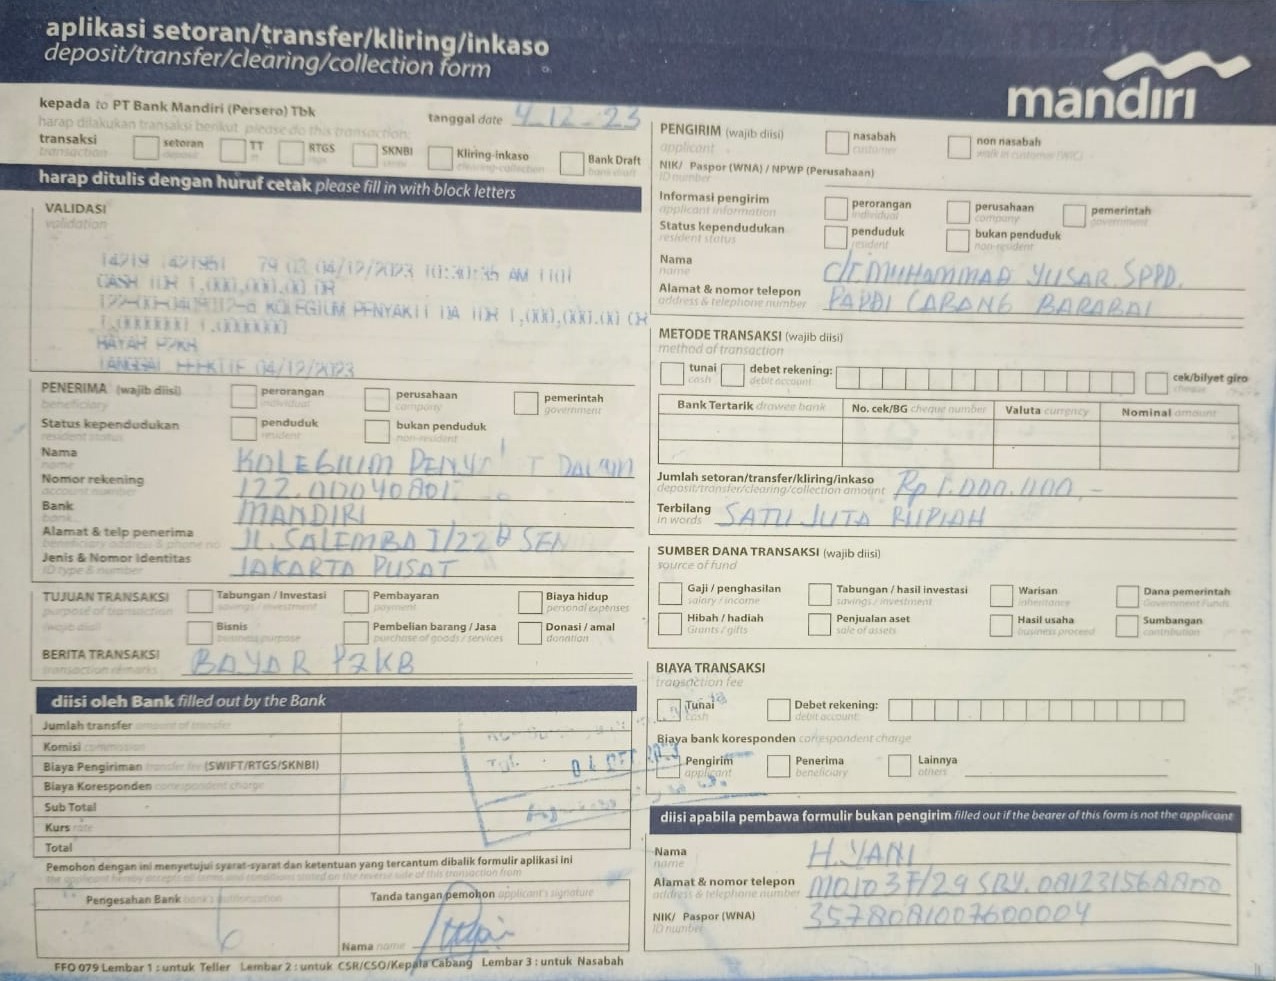 aplikasi setoran/transfer/kliring/inkaso
deposit/transfer/clearing/collection form
mandiri
kepada to PT Bank Mandiri (Persero) Tbk
tanggal date 4-12-23
harap dilakukan transaksi berikut please do this transaction:
transaksi
transaction
setoran
deposit
TT
RTGS
SKNBI
Kliring-inkaso
clearing-collection
Bank Draft
bank draft
harap ditulis dengan huruf cetak please fill in with block letters
VALIDASI
validation
04/12/2023 10:30:36 AM 1101
CASH IDR 1,000,000.00 DR
KOLEGIUM PENYAKIT DA IDR 1,000,000.00 CR
BAYAR P2KB
TANGGAL EFEKTIF 04/12/2023
PENERIMA (wajib diisi)
beneficiary
perorangan
individual
perusahaan
company
pemerintah
government
Status kependudukan
resident status
penduduk
resident
bukan penduduk
non-resident
Nama
name
KOLEGIUM DALAM
Nomor rekening
account number
Bank
bank
MANDIRI
Alamat & telp penerima
beneficiary address & phone no
JL. SALEMBA I/22 SEN
Jenis & Nomor Identitas
ID type & number
JAKARTA PUSAT
TUJUAN TRANSAKSI
purpose of transaction
(wajib diisi)
Tabungan / Investasi
savings / investment
Pembayaran
payment
Biaya hidup
personal expenses
Bisnis
business purpose
Pembelian barang / Jasa
purchase of goods / services
Donasi / amal
donation
BERITA TRANSAKSI
transaction remarks
BAYAR P2KB
diisi oleh Bank filled out by the Bank
Jumlah transfer amount of transfer
Komisi commission
Biaya Pengiriman transfer fee (SWIFT/RTGS/SKNBI)
Biaya Koresponden correspondent charge
Sub Total
Kurs rate
Total
Pemohon dengan ini menyetujui syarat-syarat dan ketentuan yang tercantum dibalik formulir aplikasi ini
the applicant hereby accepts all terms and conditions stated on the reverse side of this transaction form
Pengesahan Bank bank's authorization
Tanda tangan pemohon applicant's signature
Nama name
FFO 079 Lembar 1 : untuk Teller Lembar 2 : untuk CSR/CSO/Kepala Cabang Lembar 3 : untuk Nasabah
PENGIRIM (wajib diisi)
applicant
nasabah
customer
non nasabah
walk in customer (WIC)
NIK/ Paspor (WNA) / NPWP (Perusahaan)
ID number
Informasi pengirim
applicant information
perorangan
individual
perusahaan
company
pemerintah
government
Status kependudukan
resident status
penduduk
resident
bukan penduduk
non-resident
Nama
name
dr. MUHAMMAD YUSAR. SPPD.
Alamat & nomor telepon
address & telephone number
PAPDI CABANG BARABAI
METODE TRANSAKSI (wajib diisi)
method of transaction
tunai
cash
debet rekening:
debit account
cek/bilyet giro
cheque
Bank Tertarik drawee bank
No. cek/BG cheque number
Valuta currency
Nominal amount
Jumlah setoran/transfer/kliring/inkaso
deposit/transfer/clearing/collection amount
Rp 1.000.000,-
Terbilang
in words
SATU JUTA RUPIAH
SUMBER DANA TRANSAKSI (wajib diisi)
source of fund
Gaji / penghasilan
salary / income
Tabungan / hasil investasi
savings / investment
Warisan
inheritance
Dana pemerintah
Government Funds
Hibah / hadiah
Grants / gifts
Penjualan aset
sale of assets
Hasil usaha
business proceed
Sumbangan
contribution
BIAYA TRANSAKSI
transaction fee
Tunai
cash
Debet rekening:
debit account
Biaya bank koresponden correspondent charge
Pengirim
applicant
Penerima
beneficiary
Lainnya
others
diisi apabila pembawa formulir bukan pengirim filled out if the bearer of this form is not the applicant
Nama
name
H. YANI
Alamat & nomor telepon
address & telephone number
NIK/ Paspor (WNA)
ID number
3578081007600004